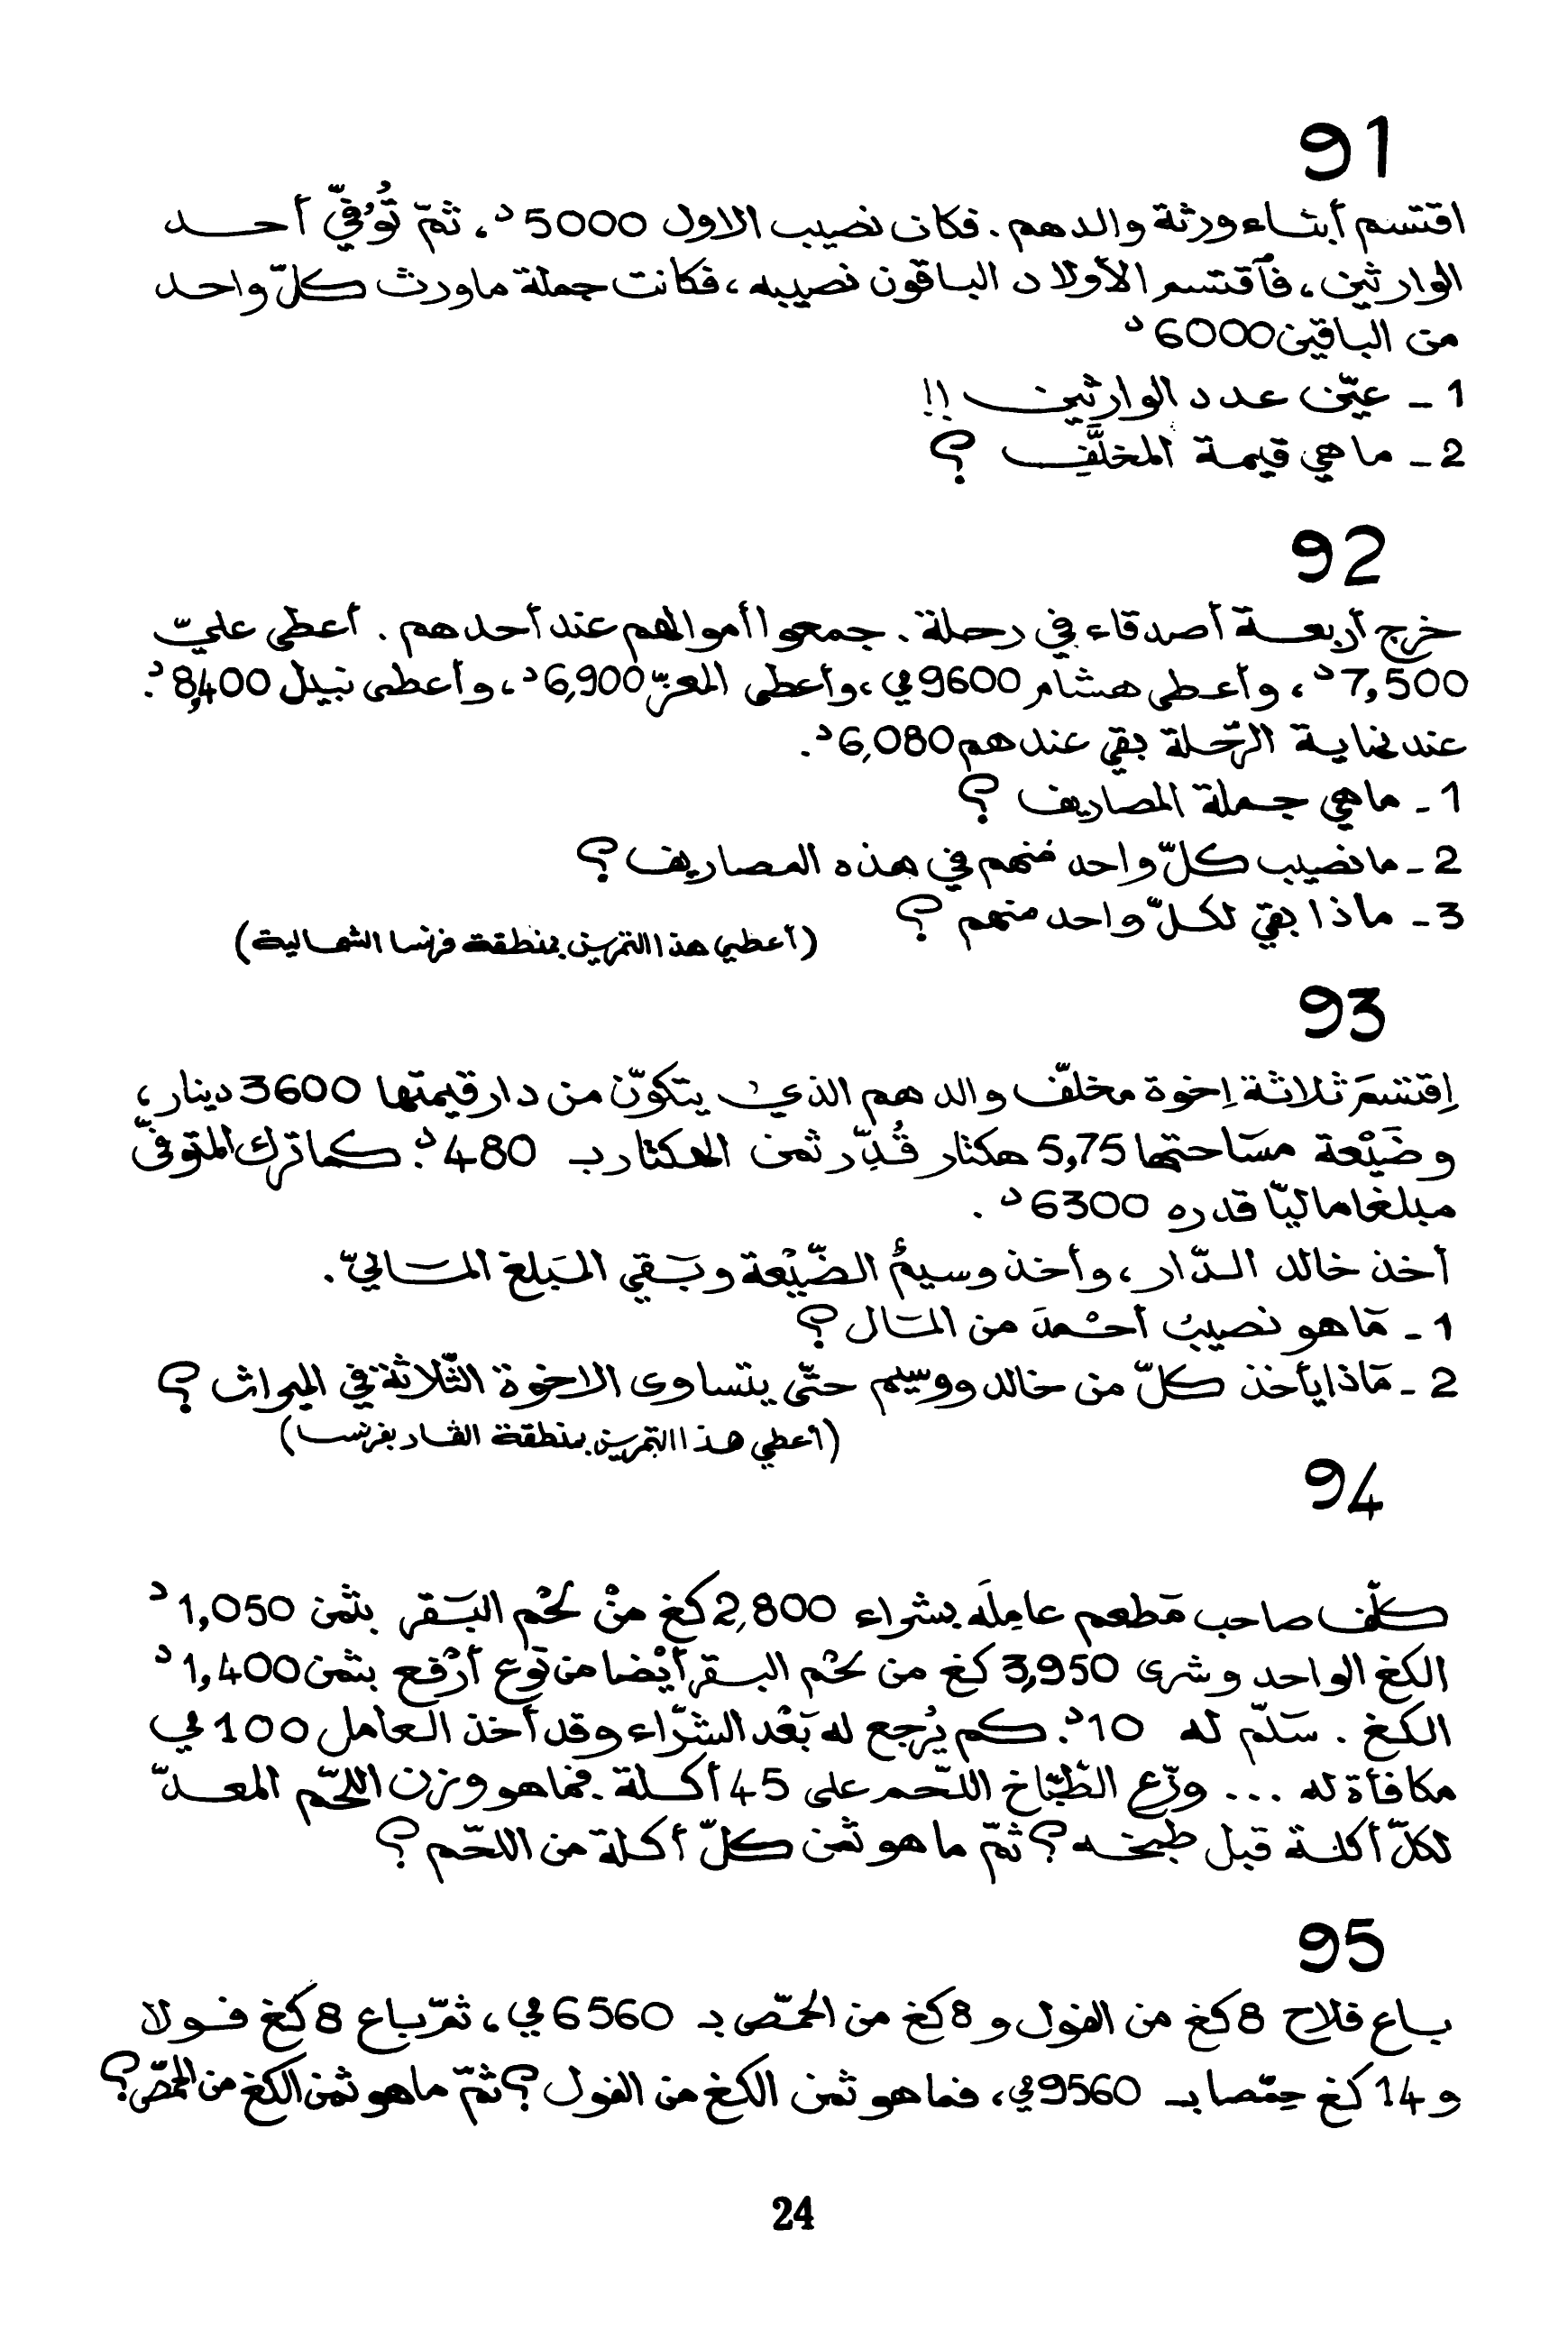 91
اقتسم أبناء ورثة والدهم. فكان نصيب الاول 5000د، ثمّ تُوُفّيّ أحد
الوارثين، فآقتسم الأولاد الباقون نصيبه، فكانت جملة ماورث كلّ واحد
من الباقين 6000د
1 - عيّن عدد الوارثين !!
2 - ما هي قيمة المخلَّف ؟
92
خرج أربعة أصدقاء في رحلة. جمعوا أموالهم عند أحدهم. أعطى عليّ
7,500د، وأعطى هشام 9600مي، وأعطى المعزّ 6,900د، وأعطى نبيل 8,400د.
عند نهاية الرّحلة بقي عندهم 6,080د.
1 - ماهي جملة المصاريف ؟
2 - ما نصيب كلّ واحد منهم في هذه المصاريف ؟
3 - ماذا بقي لكلّ واحد منهم ؟
(أعطي هذا التمرين بمنطقة فرنسا الشمالية)
93
اِقتسَمَ ثلاثة اِخوة مخلّف والدهم الذي يتكوّن من دار قيمتها 3600 دينار،
وضَيْعة مسَاحتها 5,75 هكتار قُدِّر ثمن الهكتار بـ 480د. كما ترك المتوفّى
مبلغا ماليّا قدره 6300د.
أخذ خالد الدّار، وأخذ وسيمُ الضّيْعة وبَقي المَبلغ المَاليّ.
1 - مَاهو نصيبُ أحْمدَ من المَال ؟
2 - مَاذا يأخذ كلّ من خالد ووسيم حتّى يتساوى الاخوة الثّلاثة في الميراث ؟
(أعطي هذا التمرين بمنطقة القاد بفرنسا)
94
كلّف صاحب مَطعم عامِلَه بشراء 2,800 كغ منْ لحْم البَقر بثمن 1,050د
الكغ الواحد وشرى 3,950 كغ من لحْم البقر أيْضا من نَوع أرْفع بثمن 1,400د
الكغ. سَلّم له 10د. كم يُرجع له بَعْد الشّراء وقد أخذ العامل 100 مي
مكافأة له ... وزّع الطّبّاخ اللّحم على 45 أكلة. فما هو وزن اللّحم المعدّ
لكلّ أكلة قبل طبخه ؟ ثمّ ما هو ثمن كلّ أكلة من اللّحم ؟
95
باع فلاح 8 كغ من الفول و 8 كغ من الحمّص بـ 6560 مي، ثمّ باع 8 كغ فولا
و 14 كغ حِمّصا بـ 9560 مي، فما هو ثمن الكغ من الفول ؟ ثمّ ما هو ثمن الكغ من الحمّص ؟
24